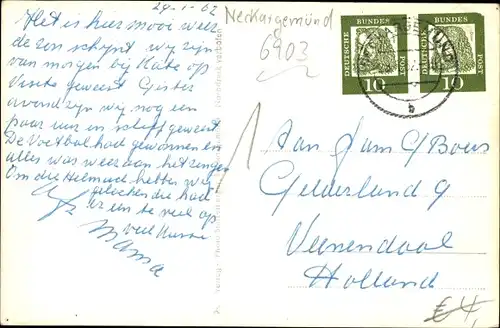 29-1-62
Het is hier mooi weer
de zon schynt wy zyn
van morgen by Kate op
visite geweest Gister
avond zyn wy nog een
paar uur en geweest
De Voetbal had gewonnen en
alles was weer aan het zingen
Om die Helmach hebben wy
gelachen die had
er een te veel op
veel Kusse
Mama
Neckargemünd
6903
DEUTSCHE BUNDESPOST
10
DEUTSCHE BUNDESPOST
10
b
Aan Fam G Boers
Gelderland 9
Veenendaal
Holland
€ 4,